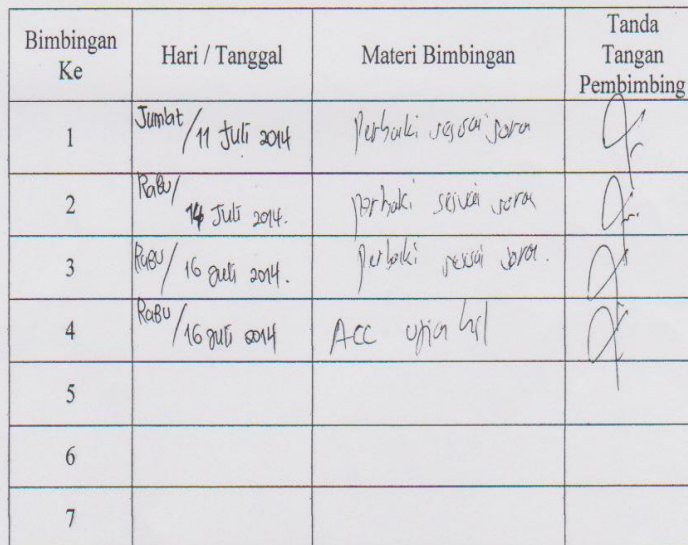 Bimbingan Ke
Hari / Tanggal
Materi Bimbingan
Tanda Tangan Pembimbing
1
Jumlat / 11 Juli 2014
Perbaiki sesuai saran
2
Rabu / 14 Juli 2014.
perbaiki sesuai saran
3
Rabu / 16 Juli 2014.
Perbaiki sesuai saran.
4
Rabu / 16 Juli 2014
Acc ujian
5
6
7